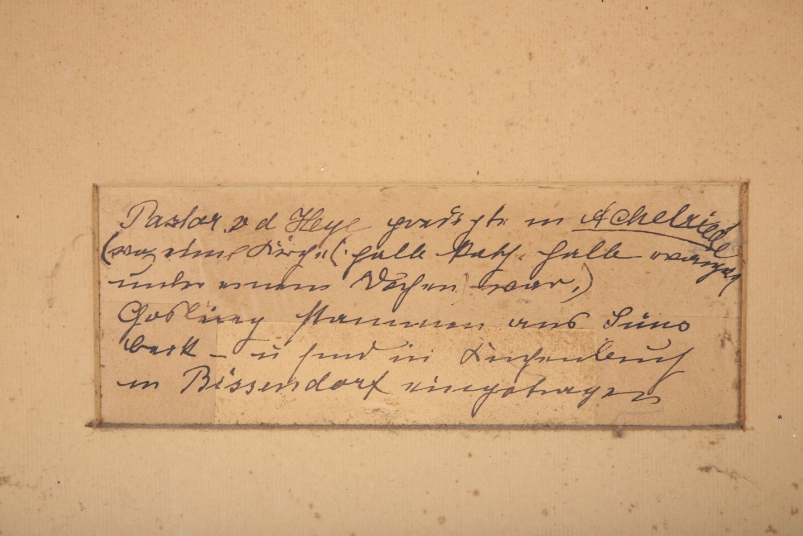 Pastor v d Heye predigte in Achelriede
(wo eine Kirche (: halb kath. halb evangel
unter einem Dache war.)
Gosling stammen aus Süns
beck – u sind in Kirchenbuch
in Bissendorf eingetragen